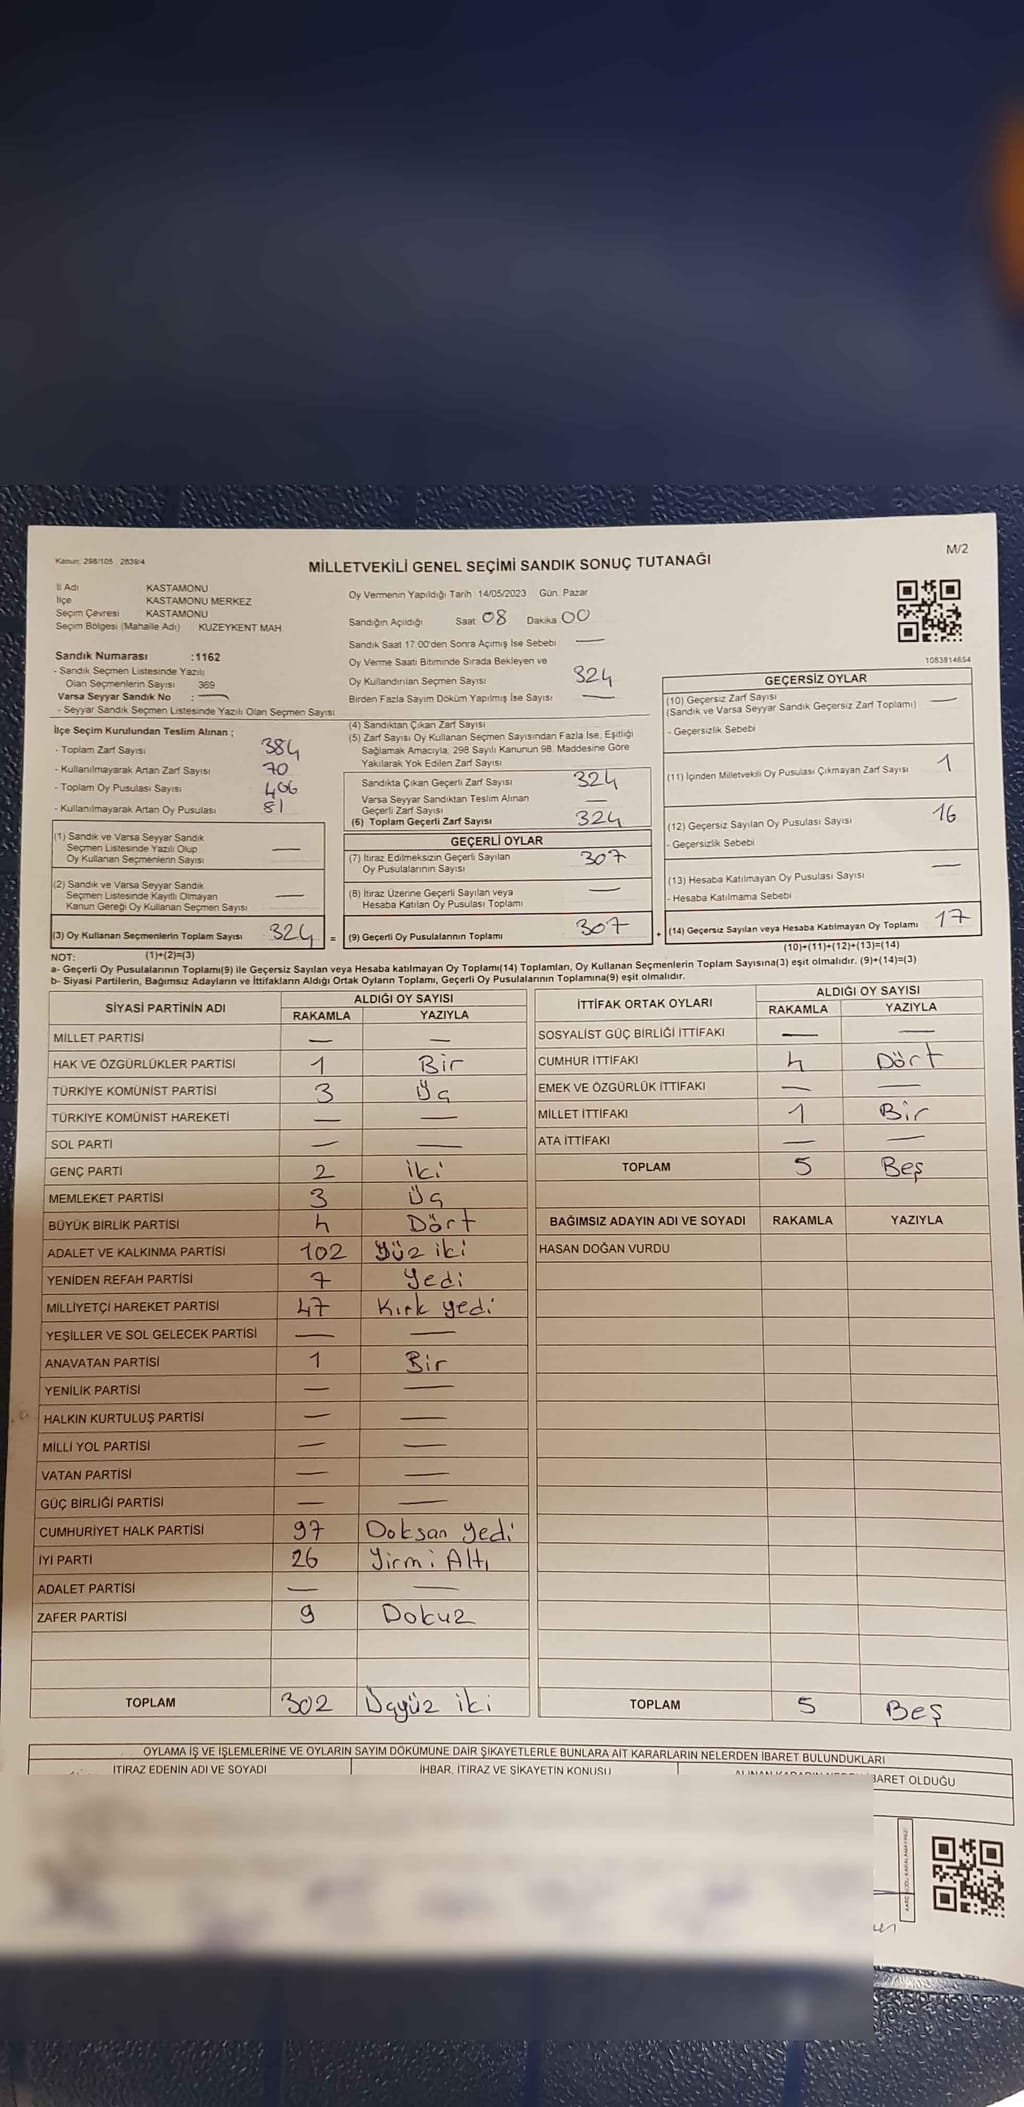 M/2
Kanun: 298/105 2839/4
MİLLETVEKİLİ GENEL SEÇİMİ SANDIK SONUÇ TUTANAĞI
İl Adı KASTAMONU
İlçe KASTAMONU MERKEZ
Seçim Çevresi KASTAMONU
Seçim Bölgesi (Mahalle Adı) KUZEYKENT MAH
Sandık Numarası :1162
- Sandık Seçmen Listesinde Yazılı
Olan Seçmenlerin Sayısı 369
Varsa Seyyar Sandık No : —
- Seyyar Sandık Seçmen Listesinde Yazılı Olan Seçmen Sayısı
Oy Vermenin Yapıldığı Tarih 14/05/2023 Gün. Pazar
Sandığın Açıldığı Saat 08 Dakika 00
Sandık Saat 17:00'den Sonra Açımış İse Sebebi —
Oy Verme Saati Bitiminde Sırada Bekleyen ve
Oy Kullandırılan Seçmen Sayısı 324
Birden Fazla Sayım Döküm Yapılmış İse Sayısı —
1083814654
İlçe Seçim Kurulundan Teslim Alınan ;
- Toplam Zarf Sayısı 384
- Kullanılmayarak Artan Zarf Sayısı 70
- Toplam Oy Pusulası Sayısı 406
- Kullanılmayarak Artan Oy Pusulası 81
(1) Sandık ve Varsa Seyyar Sandık
Seçmen Listesinde Yazılı Olup
Oy Kullanan Seçmenlerin Sayısı —
(2) Sandık ve Varsa Seyyar Sandık
Seçmen Listesinde Kayıtlı Olmayan
Kanun Gereği Oy Kullanan Seçmen Sayısı —
(3) Oy Kullanan Seçmenlerin Toplam Sayısı 324 =
(1)+(2)=(3)
(4) Sandıktan Çıkan Zarf Sayısı
(5) Zarf Sayısı Oy Kullanan Seçmen Sayısından Fazla İse, Eşitliği
Sağlamak Amacıyla, 298 Sayılı Kanunun 98. Maddesine Göre
Yakılarak Yok Edilen Zarf Sayısı
Sandıkta Çıkan Geçerli Zarf Sayısı 324
Varsa Seyyar Sandıktan Teslim Alınan
Geçerli Zarf Sayısı —
(6) Toplam Geçerli Zarf Sayısı 324
GEÇERLİ OYLAR
(7) İtiraz Edilmeksizin Geçerli Sayılan
Oy Pusulalarının Sayısı 307
(8) İtiraz Üzerine Geçerli Sayılan veya
Hesaba Katılan Oy Pusulası Toplamı —
(9) Geçerli Oy Pusulalarının Toplamı 307 +
GEÇERSİZ OYLAR
(10) Geçersiz Zarf Sayısı
(Sandık ve Varsa Seyyar Sandık Geçersiz Zarf Toplamı) —
- Geçersizlik Sebebi
(11) İçinden Milletvekili Oy Pusulası Çıkmayan Zarf Sayısı 1
(12) Geçersiz Sayılan Oy Pusulası Sayısı 16
- Geçersizlik Sebebi
(13) Hesaba Katılmayan Oy Pusulası Sayısı —
- Hesaba Katılmama Sebebi
(14) Geçersiz Sayılan veya Hesaba Katılmayan Oy Toplamı 17
(10)+(11)+(12)+(13)=(14)
NOT:
a- Geçerli Oy Pusulalarının Toplamı(9) ile Geçersiz Sayılan veya Hesaba katılmayan Oy Toplamı(14) Toplamları, Oy Kullanan Seçmenlerin Toplam Sayısına(3) eşit olmalıdır. (9)+(14)=(3)
b- Siyasi Partilerin, Bağımsız Adayların ve İttifakların Aldığı Ortak Oyların Toplamı, Geçerli Oy Pusulalarının Toplamına(9) eşit olmalıdır.
SİYASİ PARTİNİN ADI ALDIĞI OY SAYISI
RAKAMLA YAZIYLA
MİLLET PARTİSİ — —
HAK VE ÖZGÜRLÜKLER PARTİSİ 1 Bir
TÜRKİYE KOMÜNİST PARTİSİ 3 Üç
TÜRKİYE KOMÜNİST HAREKETİ — —
SOL PARTİ — —
GENÇ PARTİ 2 İki
MEMLEKET PARTİSİ 3 Üç
BÜYÜK BİRLİK PARTİSİ 4 Dört
ADALET VE KALKINMA PARTİSİ 102 Yüz iki
YENİDEN REFAH PARTİSİ 7 Yedi
MİLLİYETÇİ HAREKET PARTİSİ 47 Kırk yedi
YEŞİLLER VE SOL GELECEK PARTİSİ — —
ANAVATAN PARTİSİ 1 Bir
YENİLİK PARTİSİ — —
HALKIN KURTULUŞ PARTİSİ — —
MİLLİ YOL PARTİSİ — —
VATAN PARTİSİ — —
GÜÇ BİRLİĞİ PARTİSİ — —
CUMHURİYET HALK PARTİSİ 97 Doksan yedi
İYİ PARTİ 26 Yirmi Altı
ADALET PARTİSİ — —
ZAFER PARTİSİ 9 Dokuz
TOPLAM 302 Üçyüz iki
İTTİFAK ORTAK OYLARI ALDIĞI OY SAYISI
RAKAMLA YAZIYLA
SOSYALİST GÜÇ BİRLİĞİ İTTİFAKI — —
CUMHUR İTTİFAKI 4 Dört
EMEK VE ÖZGÜRLÜK İTTİFAKI — —
MİLLET İTTİFAKI 1 Bir
ATA İTTİFAKI — —
TOPLAM 5 Beş
BAĞIMSIZ ADAYIN ADI VE SOYADI RAKAMLA YAZIYLA
HASAN DOĞAN VURDU
TOPLAM 5 Beş
OYLAMA İŞ VE İŞLEMLERİNE VE OYLARIN SAYIM DÖKÜMÜNE DAİR ŞİKAYETLERLE BUNLARA AİT KARARLARIN NELERDEN İBARET BULUNDUKLARI
İTİRAZ EDENİN ADI VE SOYADI İHBAR, İTİRAZ VE ŞİKAYETİN KONUSU İBARET OLDUĞU